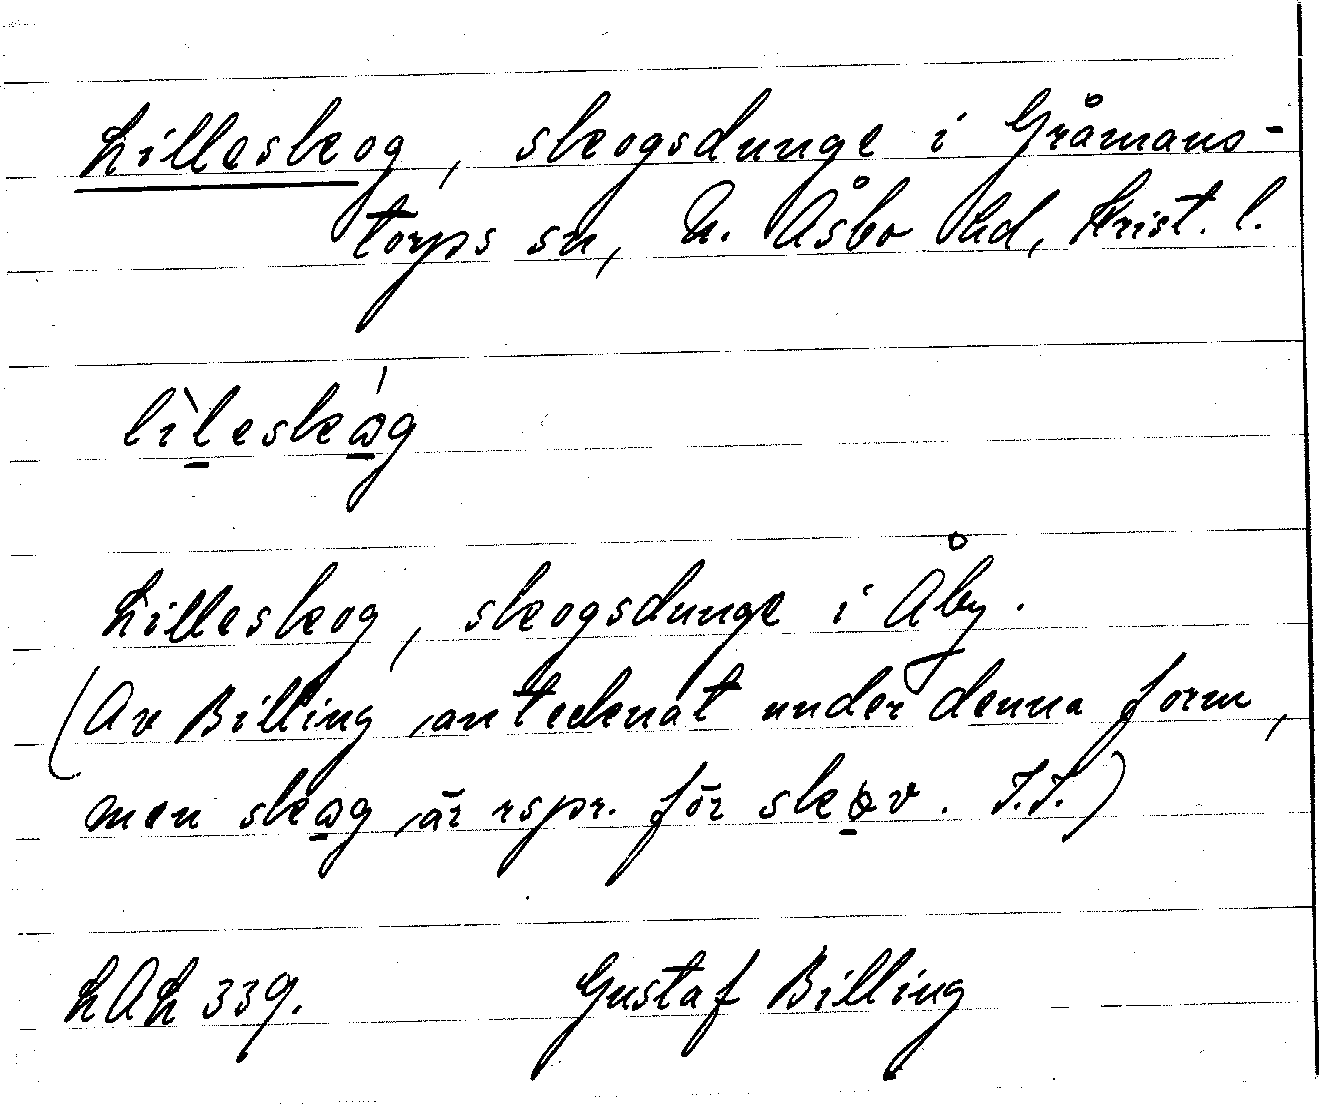 Lilleskog, skogsdunge i Gråmans-
torps sn, N. Åsbo hd, Krist. l.
lìleskág
Lilleskog, skogsdunge i Åby.
(Av Billing antecknat under denna form,
men skag är rspr. för skov. I.I.)
LAL 339.    Gustaf Billing